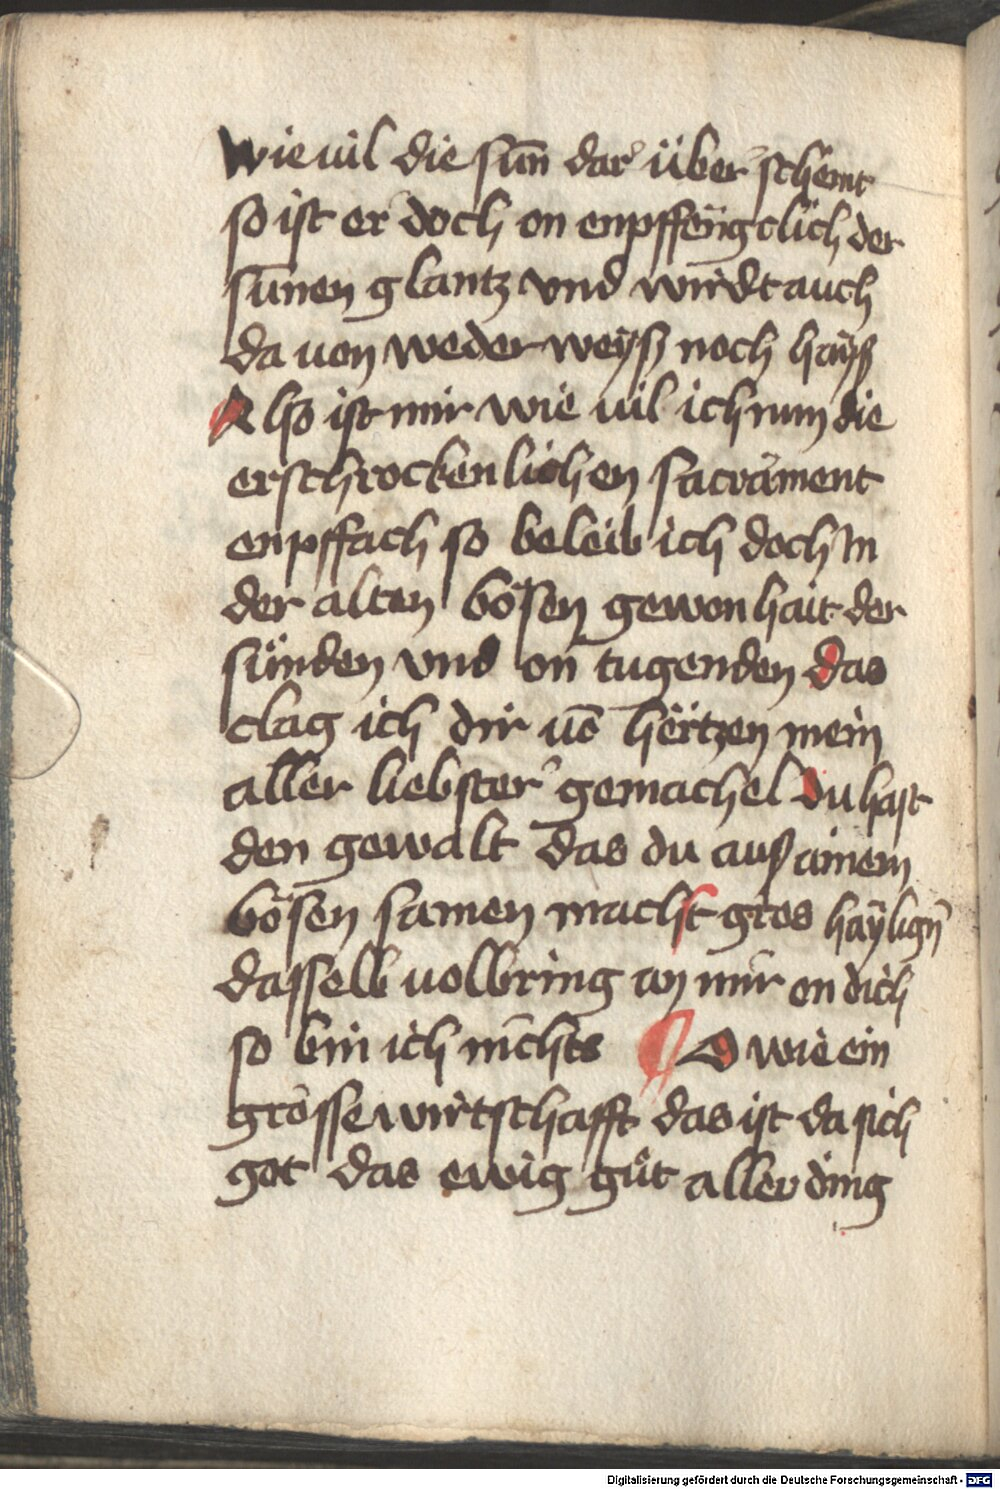 wie uil die sun̄ dar über schēint
so ist er doch on enpffengclich der
sunnen glantz vnd wirdt auch
da uon weder weÿß noch haÿß
Also ist mir wie uil ich num die
erschrockenlichen sacrament
enpffach so beleib ich doch In
der alten bösen gewonhait der
sünden vnd on tugenden das
clag ich dir uō hertzen mein
aller liebster gemachel du hast
den gewalt das du auß ainem
bösen samen machst gros haÿlign̄
dasselb uolbring an mir on dich
so bin ich nichts O wie ein
grosse wirtschafft das ist da sich
got das ewig gůt aller ding
Digitalisierung gefördert durch die Deutsche Forschungsgemeinschaft - DFG